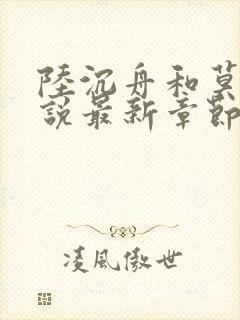 陸沉舟和莫
說最新章節
凌風傲世